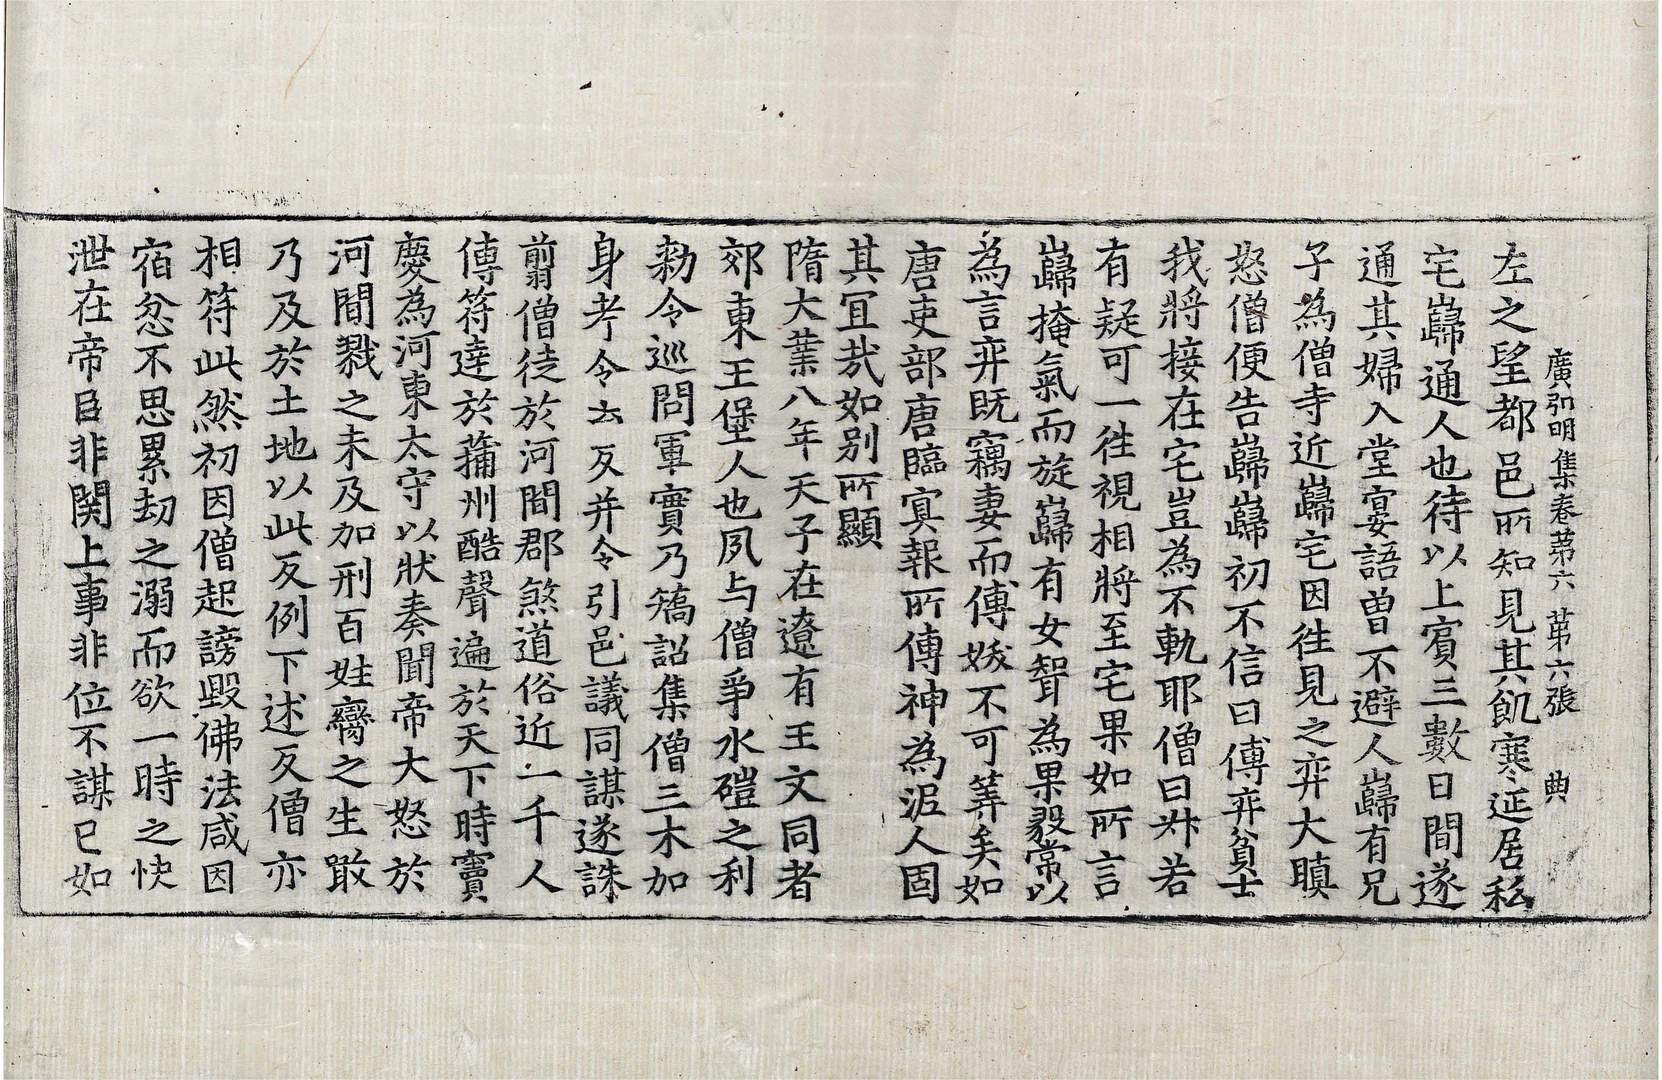 廣弘明集卷第六 第六張 典
左之望都邑所知見其飢寒延居私
宅巋通人也待以上賓三數日間遂
通其婦入堂宴語曾不避人巋有兄
子為僧寺近巋宅因徃見之弈大瞋
怒僧便告巋巋初不信曰傅弈貧士
我將接在宅豈為不軌耶僧曰𣅜若
有疑可一徃視相將至宅果如所言
巋掩氣而旋巋有女聟為果毅常以
為言弈既竊妻而傅妭不可筭矣如
唐吏部唐臨冥報所傳神為泥人固
其宜㢤如別所顯
隋大業八年天子在遼有王文同者
郊東王堡人也夙与僧爭水磑之利
勑令巡問軍實乃矯詔集僧三木加
身考令去反并令引邑議同謀遂誅
翦僧徒於河間郡煞道俗近一千人
傳符達於蒲州酷聲遍於天下時竇
慶為河東太守以狀奏聞帝大怒於
河間戮之未及加刑百姓臠之生噉
乃及於土地以此反例下述反僧亦
相符此然初因僧起謗毀佛法咸因
宿忿不思累劫之溺而欲一時之快
泄在帝臣非関上事非位不謀已如